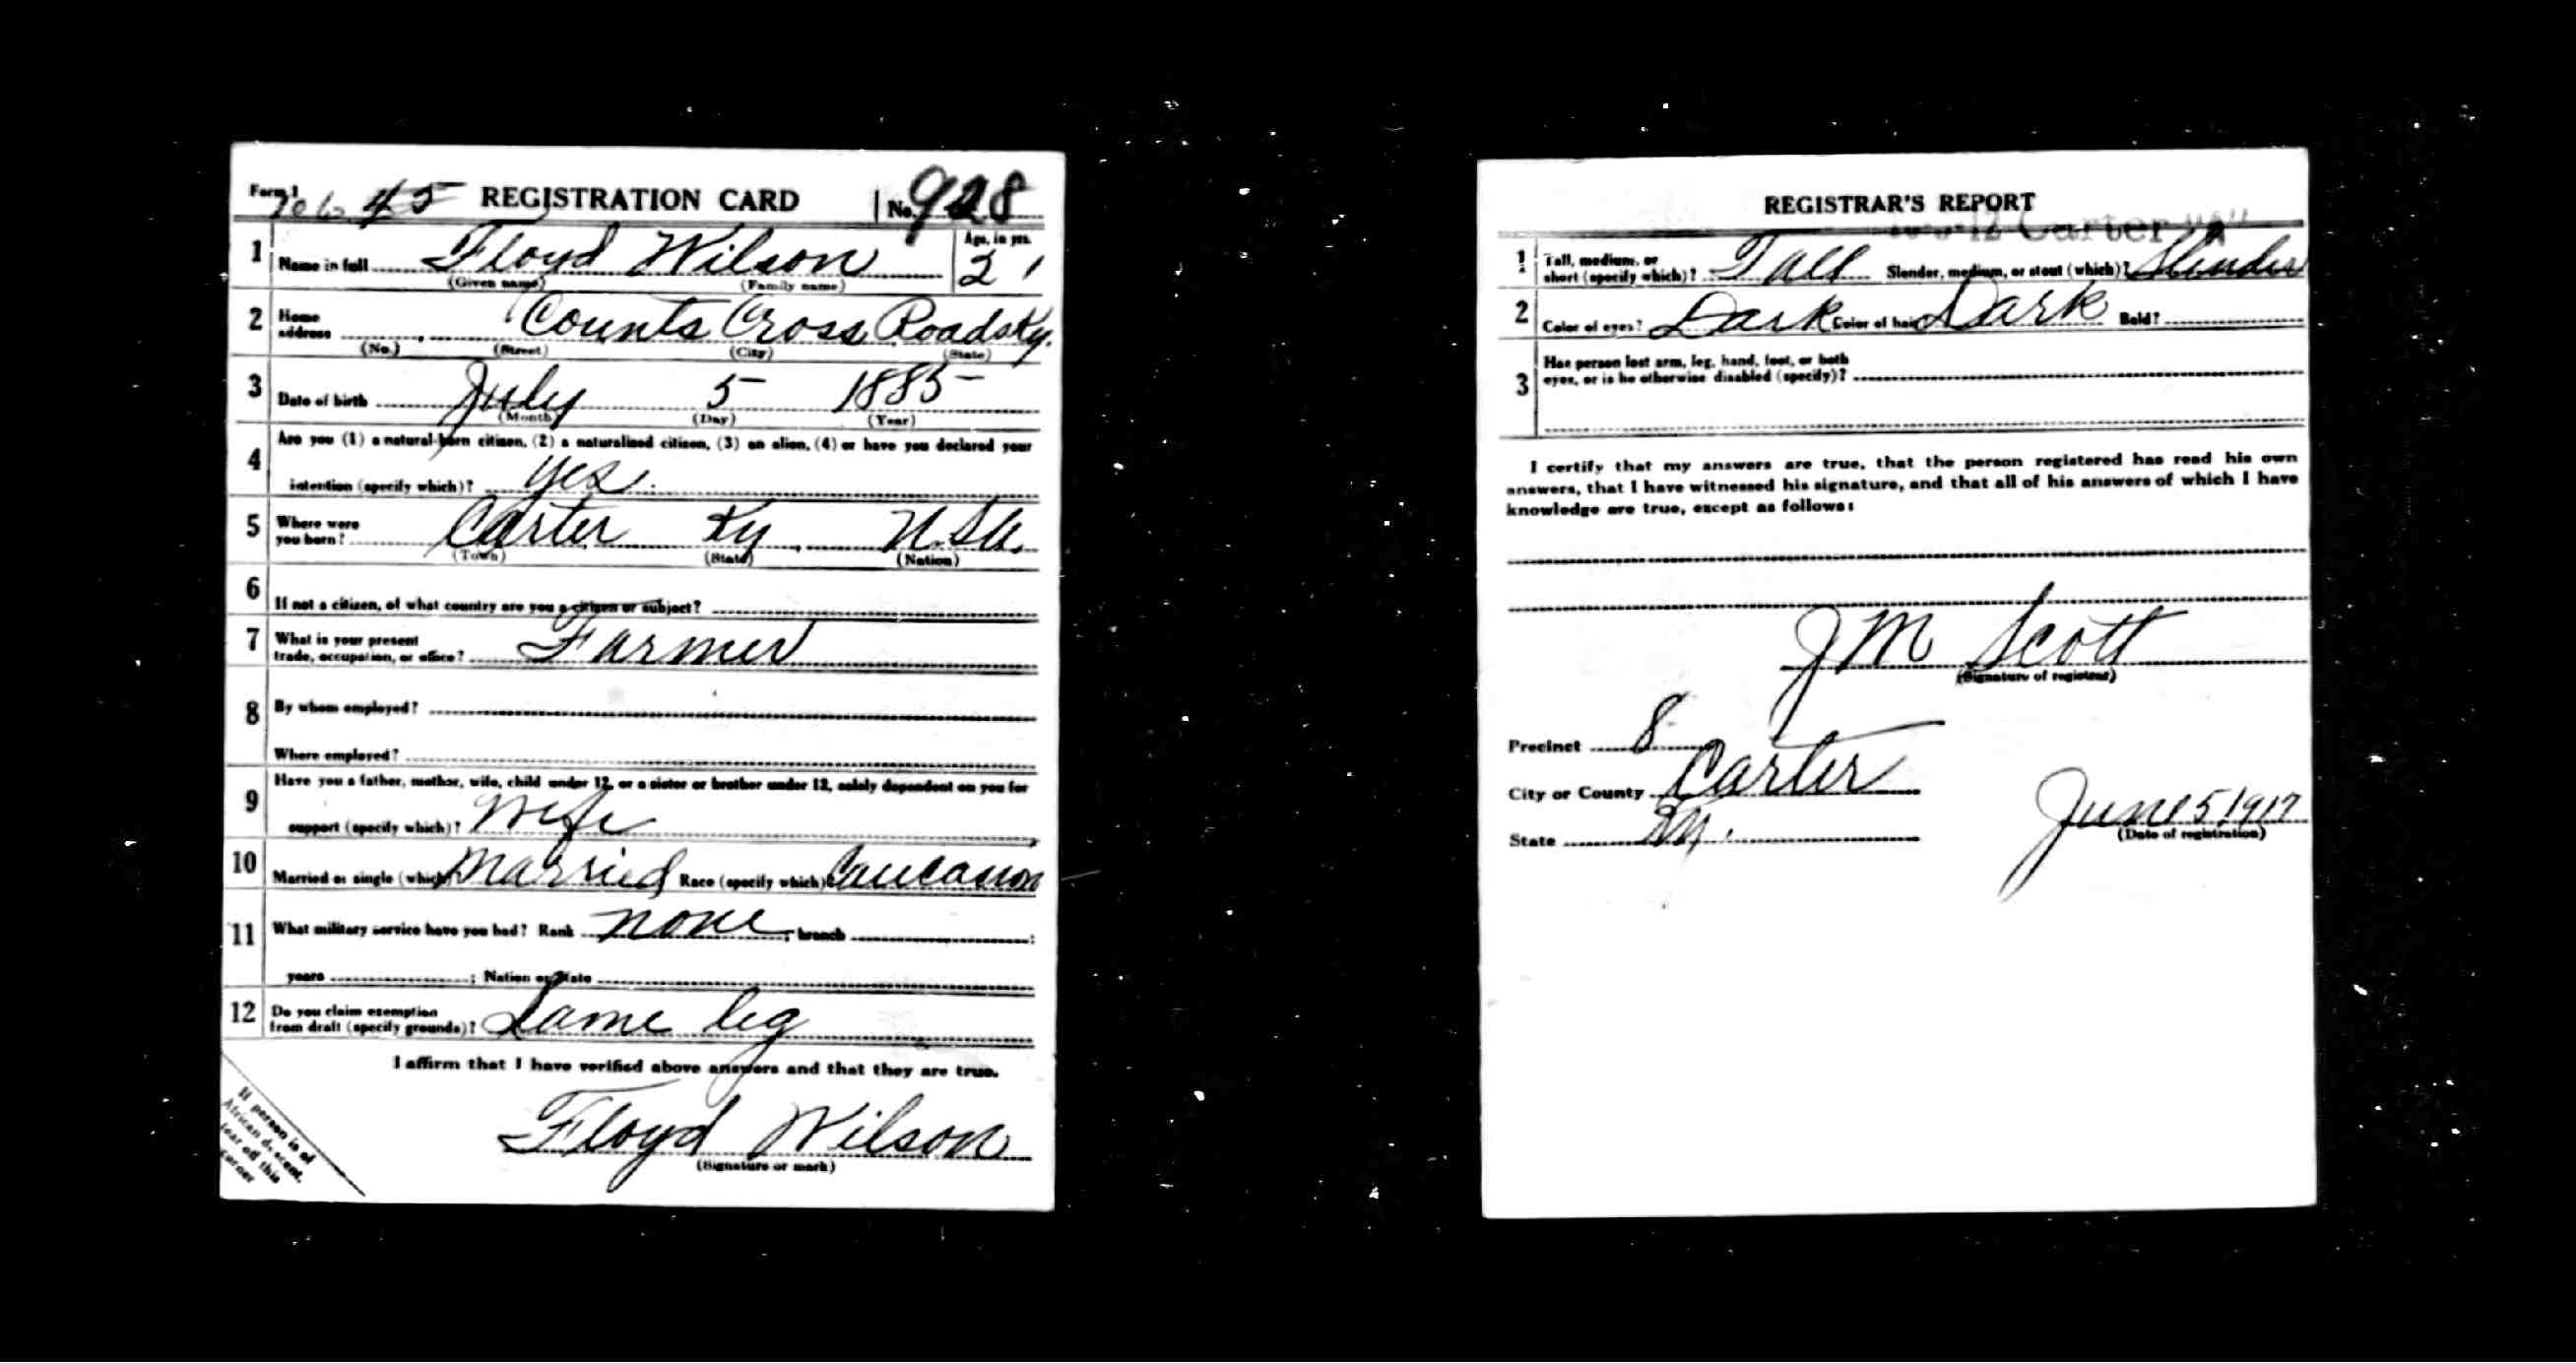 Form 1 45 REGISTRATION CARD No. 928
1 Name in full Floyd Wilson Age, in yrs. 21
(Given name) (Family name)
2 Home address Counts Cross Roads Ky.
(No.) (Street) (City) (State)
3 Date of birth July 5 1885
(Month) (Day) (Year)
4 Are you (1) a natural-born citizen, (2) a naturalized citizen, (3) an alien, (4) or have you declared your
intention (specify which)? yes.
5 Where were you born? Carter Ky U.S.A.
(Town) (State) (Nation)
6 If not a citizen, of what country are you a citizen or subject?
7 What is your present
trade, occupation, or office? Farmer
8 By whom employed?
Where employed?
9 Have you a father, mother, wife, child under 12, or a sister or brother under 12, solely dependent on you for
support (specify which)? Wife
10 Married or single (which)? Married Race (specify which)? Caucasion
11 What military service have you had? Rank none; branch ;
years ; Nation or State
12 Do you claim exemption
from draft (specify grounds)? Lame leg
I affirm that I have verified above answers and that they are true.
Floyd Wilson
(Signature or mark)
If person is of
African descent,
tear off this
corner
REGISTRAR'S REPORT
12 Carter "A"
1 Tall, medium, or
short (specify which)? Tall Slender, medium, or stout (which)? Slender
2 Color of eyes? Dark Color of hair? Dark Bald?
3 Has person lost arm, leg, hand, foot, or both
eyes, or is he otherwise disabled (specify)?
I certify that my answers are true, that the person registered has read his own
answers, that I have witnessed his signature, and that all of his answers of which I have
knowledge are true, except as follows:
J M Scott
(Signature of registrar)
Precinct 8
City or County Carter
State Ky. June 5 1917
(Date of registration)